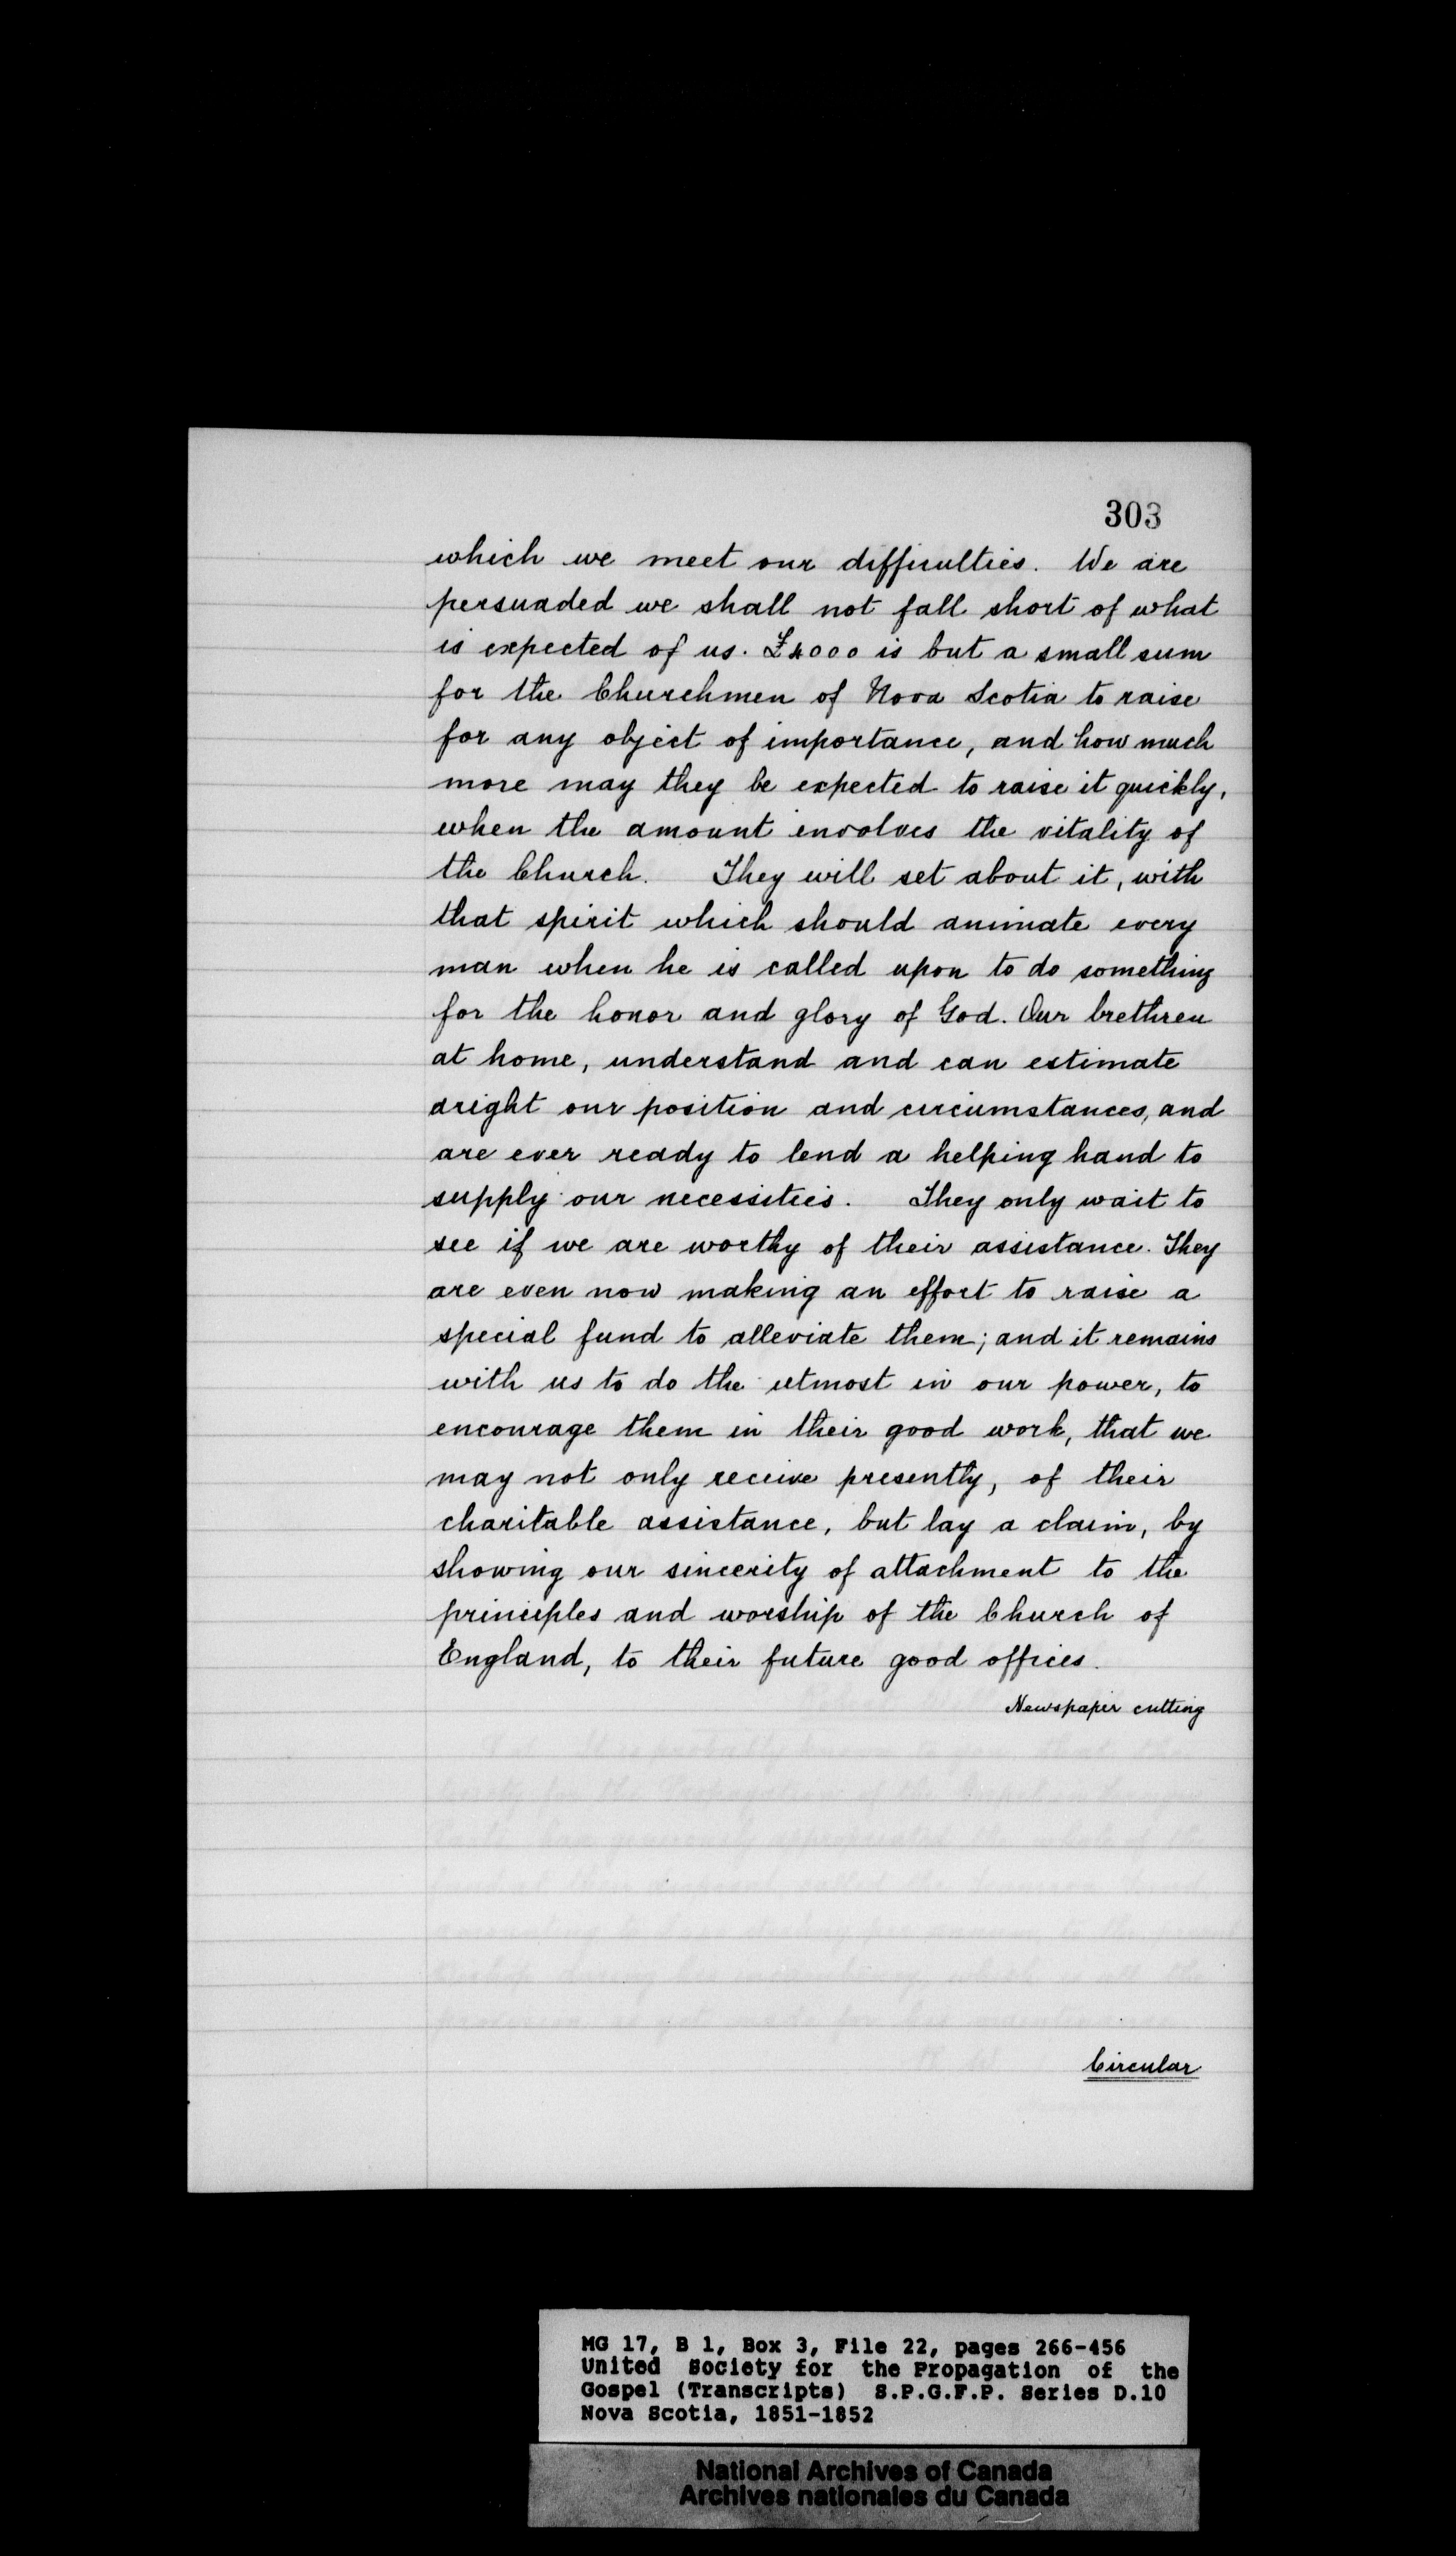 303
which we meet our difficulties. We are
persuaded we shall not fall short of what
is expected of us. £4000 is but a small sum
for the Churchmen of Nova Scotia to raise
for any object of importance, and how much
more may they be expected to raise it quickly,
when the amount involves the vitality of
the Church. They will set about it, with
that spirit which should animate every
man when he is called upon to do something
for the honor and glory of God. Our brethren
at home, understand and can estimate
aright our position and circumstances, and
are ever ready to lend a helping hand to
supply our necessities. They only wait to
see if we are worthy of their assistance. They
are even now making an effort to raise a
special fund to alleviate them; and it remains
with us to do the utmost in our power, to
encourage them in their good work, that we
may not only receive presently, of their
charitable assistance, but lay a claim, by
showing our sincerity of attachment to the
principles and worship of the Church of
England, to their future good offices.
Newspaper cutting
Circular
MG 17, B 1, Box 3, File 22, pages 266-456
United Society for the Propagation of the
Gospel (Transcripts) S.P.G.F.P. Series D.10
Nova Scotia, 1851-1852
National Archives of Canada
Archives nationales du Canada